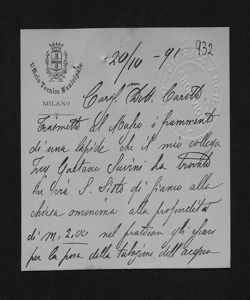 20/10 - 91
932
Ufficio Tecnico Municipale
MILANO
Cariss. Dott. Carotti
Trasmetto al Museo i frammenti
di una lapide che il mio collega
Ing Gaetano ha trovato
in via S. Sisto di fianco alla
chiesa omonima alla profondità
di m. 2.00 nel praticare gli scavi
per la posa della tubazione dell'acqua